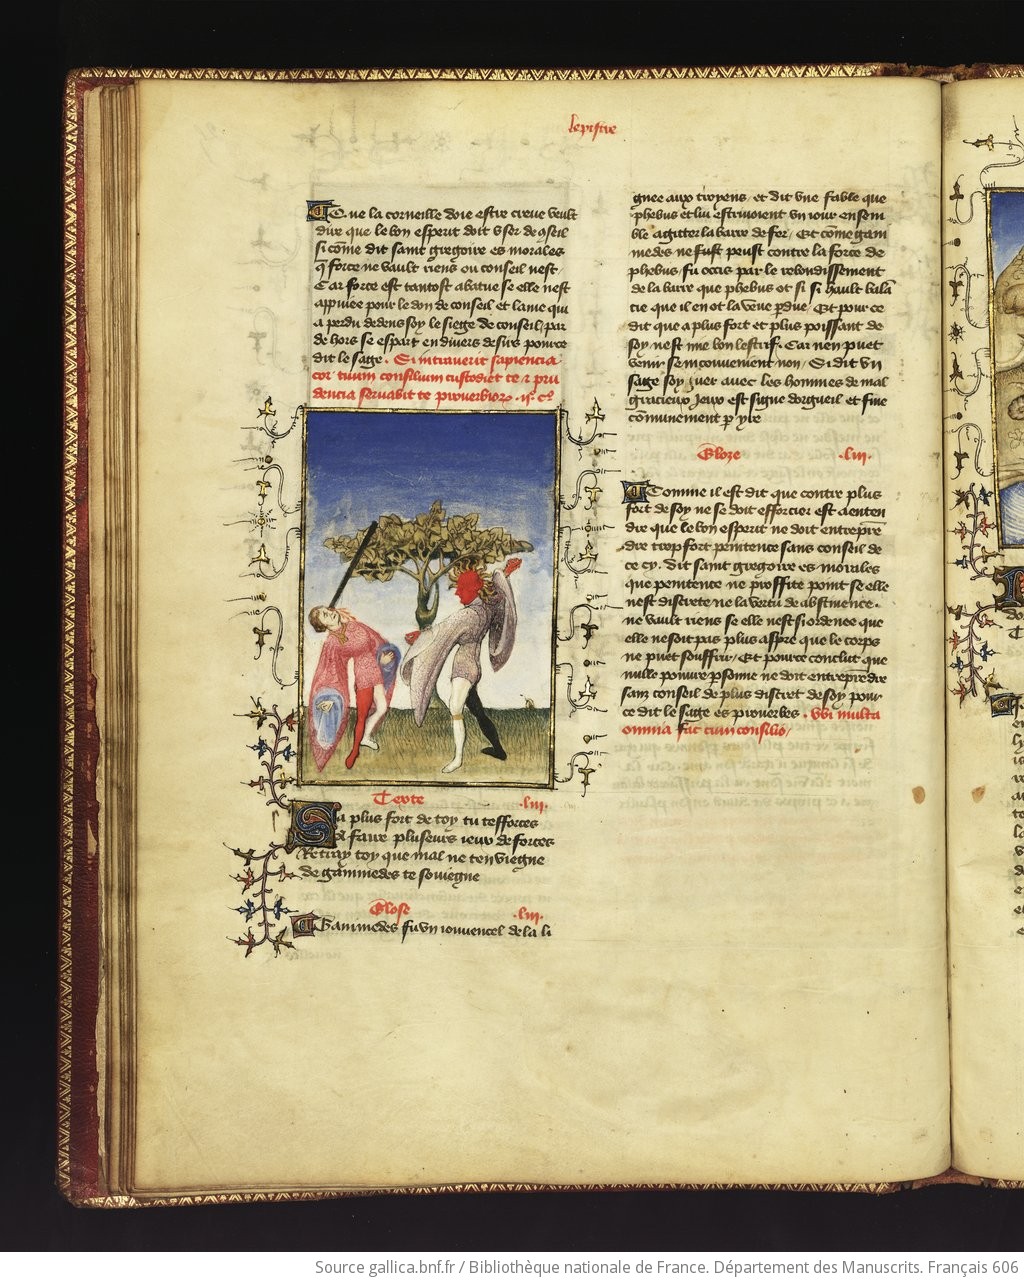 lepistre
Que la corneille doie estre creue veult
dire que le bon esperit doit user de gseil
si cõme dit saint gregoire es morales
q̃ force ne vault riens ou conseil nest /
Car force est tantost abatue se elle nest
appuiee pour le don de conseil et lame qui
a perdu dedens soy le siege de conseil / par
de hors se espart en divers desirs pource
dit le sage . Si intraverit sapiencia
cor tuum consilium custodiet te et pru
dencia servabit te proverbior̃ . ij.º c.º
Texte .liii.
Sa plus fort de toy tu tefforces
A faire plusieurs ieux de forces
Retray toy que mal ne ten viegne
de ganimedes te souiegne
Glose .liii.
Ganimedes fu vn iouuencel de la li
gnee aux troyens / et dit vne fable que
phebus et lui estriuoient vn iour ensem
ble a gitter la barre de fer / Et cõme gani
medes ne fust peust contre la force de
phebus / fu occis par le rebondissement
de la barre que phebus ot si si hault balã
cie que il en ot la veue p̃due / Et pour ce
dit que a plus fort et plus poissant de
soy nest mie bon lestrif . Car nen puet
venir se inconuenient non / Si dit vn
sage soy iuer avec les hommes de mal
gracieux ieux est signe dorgueil et fine
cõmunement p̲ yre
Gloze .liii.
Comme il est dit que contre plus
fort de soy ne se doit efforcier est a enten
dre que le bon esperit ne doit entrepre̅
dre trop fort penitence sans conseil de
ce cy . dit saint gregoire es morales
que penitence ne proffite point se elle
nest discrete ne la vertu de abstinence .
ne vault riens se elle nest si ordenee que
elle ne soit pas plus aspre que le corps
ne puet souffrir / Et pource conclut que
nulle pouure p̲sonne ne doit entreprẽdre
sanz conseil de plus discret de soy pour
ce dit le sage es prouerbes . Vbi multa
omnia fiut cum consilio /
Source gallica.bnf.fr / Bibliothèque nationale de France. Département des Manuscrits. Français 606